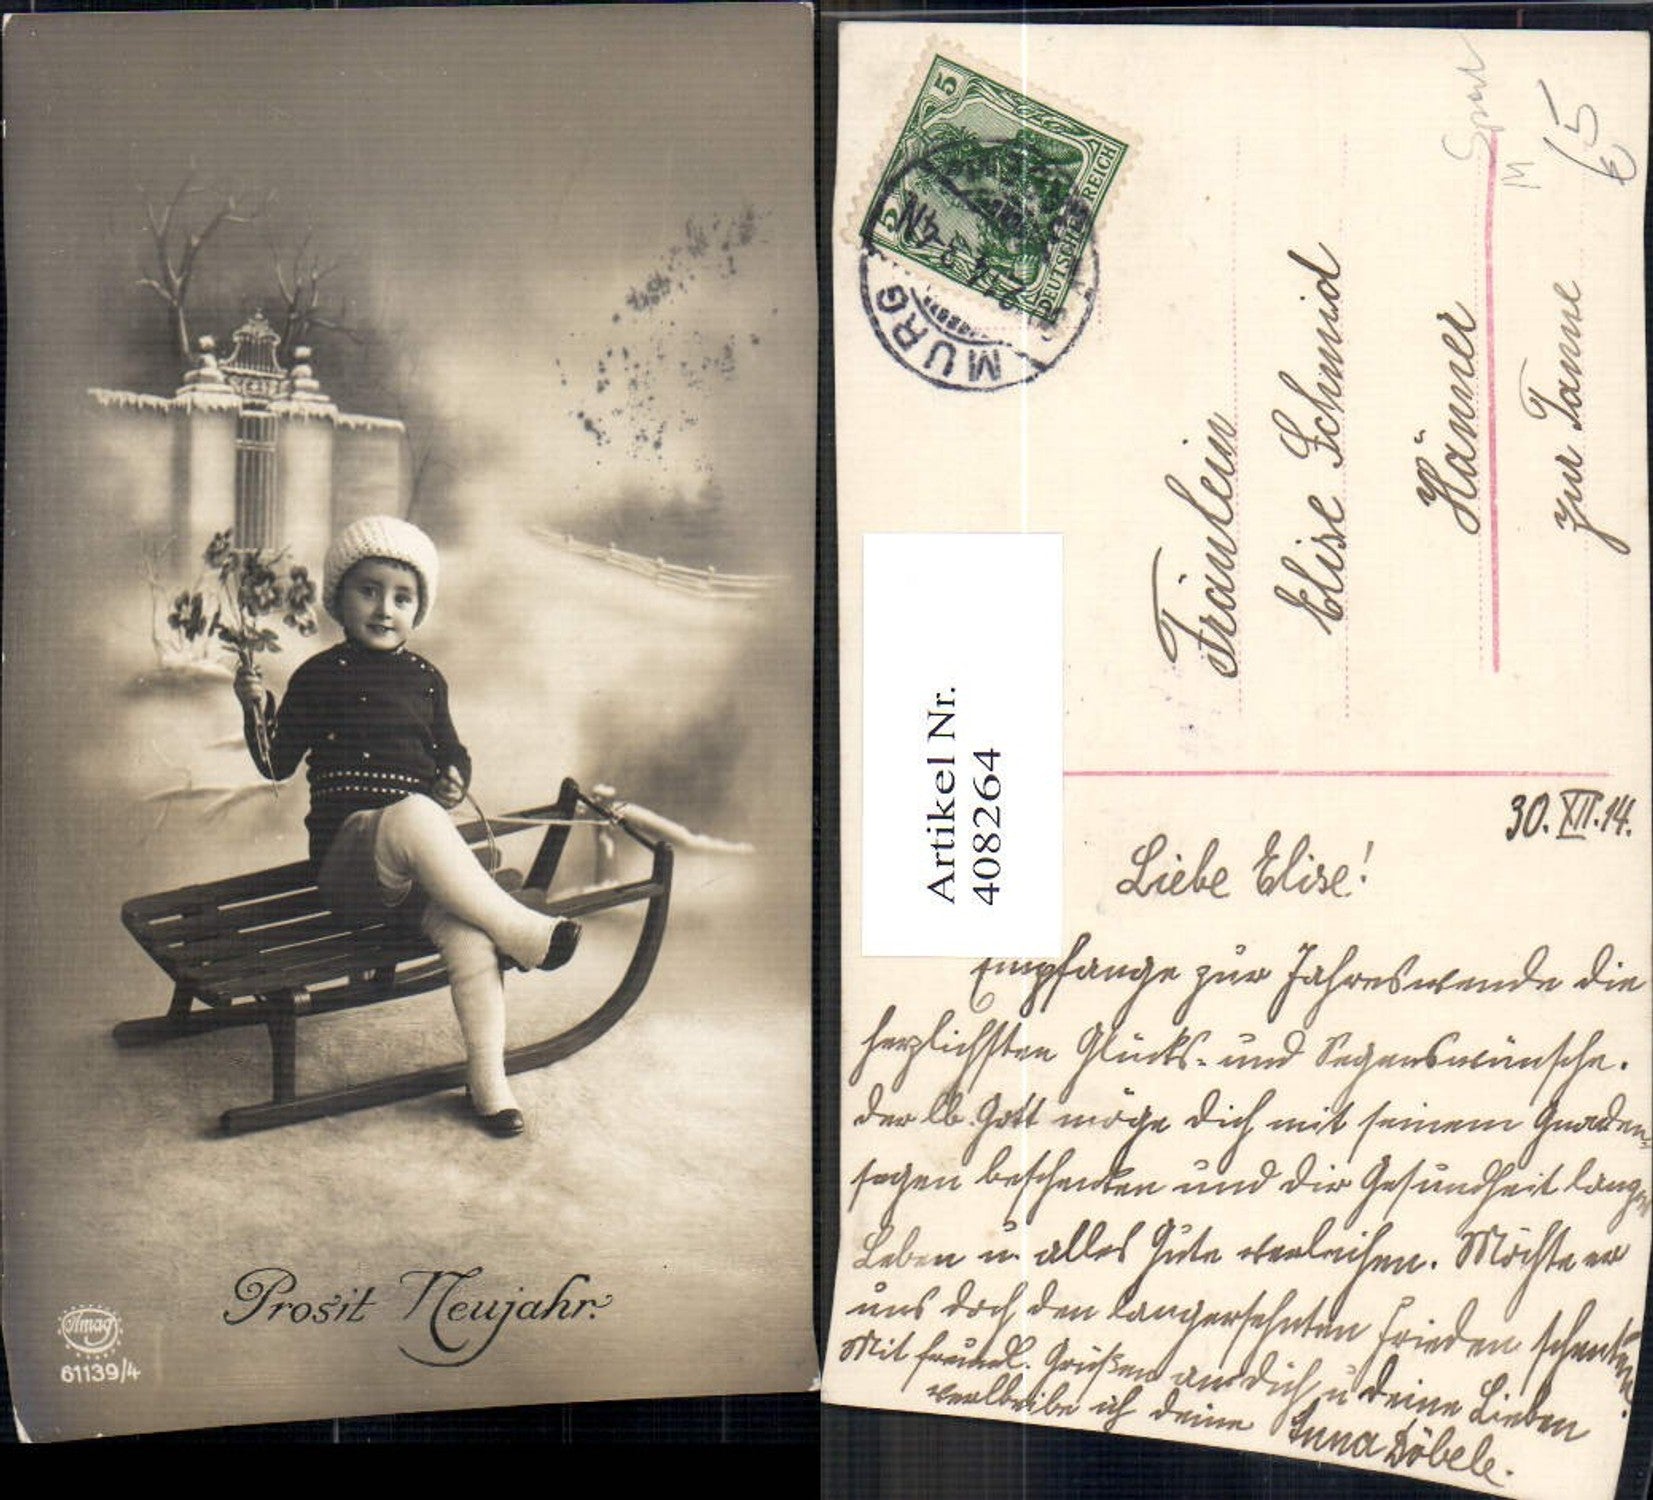 Prosit Neujahr.
Amag
61139/4
5
5
DEUTSCHES REICH
MURG
3-4N
Artikel Nr.
408264
65
Fräulein
Elise Schmid
Hänner
zur Tanne
30. XII. 14.
Liebe Elise!
Empfange zur Jahreswende die
herzlichsten Glücks- und Segenswünsche.
Der lb. Gott möge dich mit seinem Gnaden-
segen beschenken und dir Gesundheit langes
Leben u. alles Gute verleihen. Möchte er
uns doch den langersehnten Frieden schenken.
Mit freundl. Grüßen an dich u deine Lieben
verbleibe ich deine Anna Döbele.